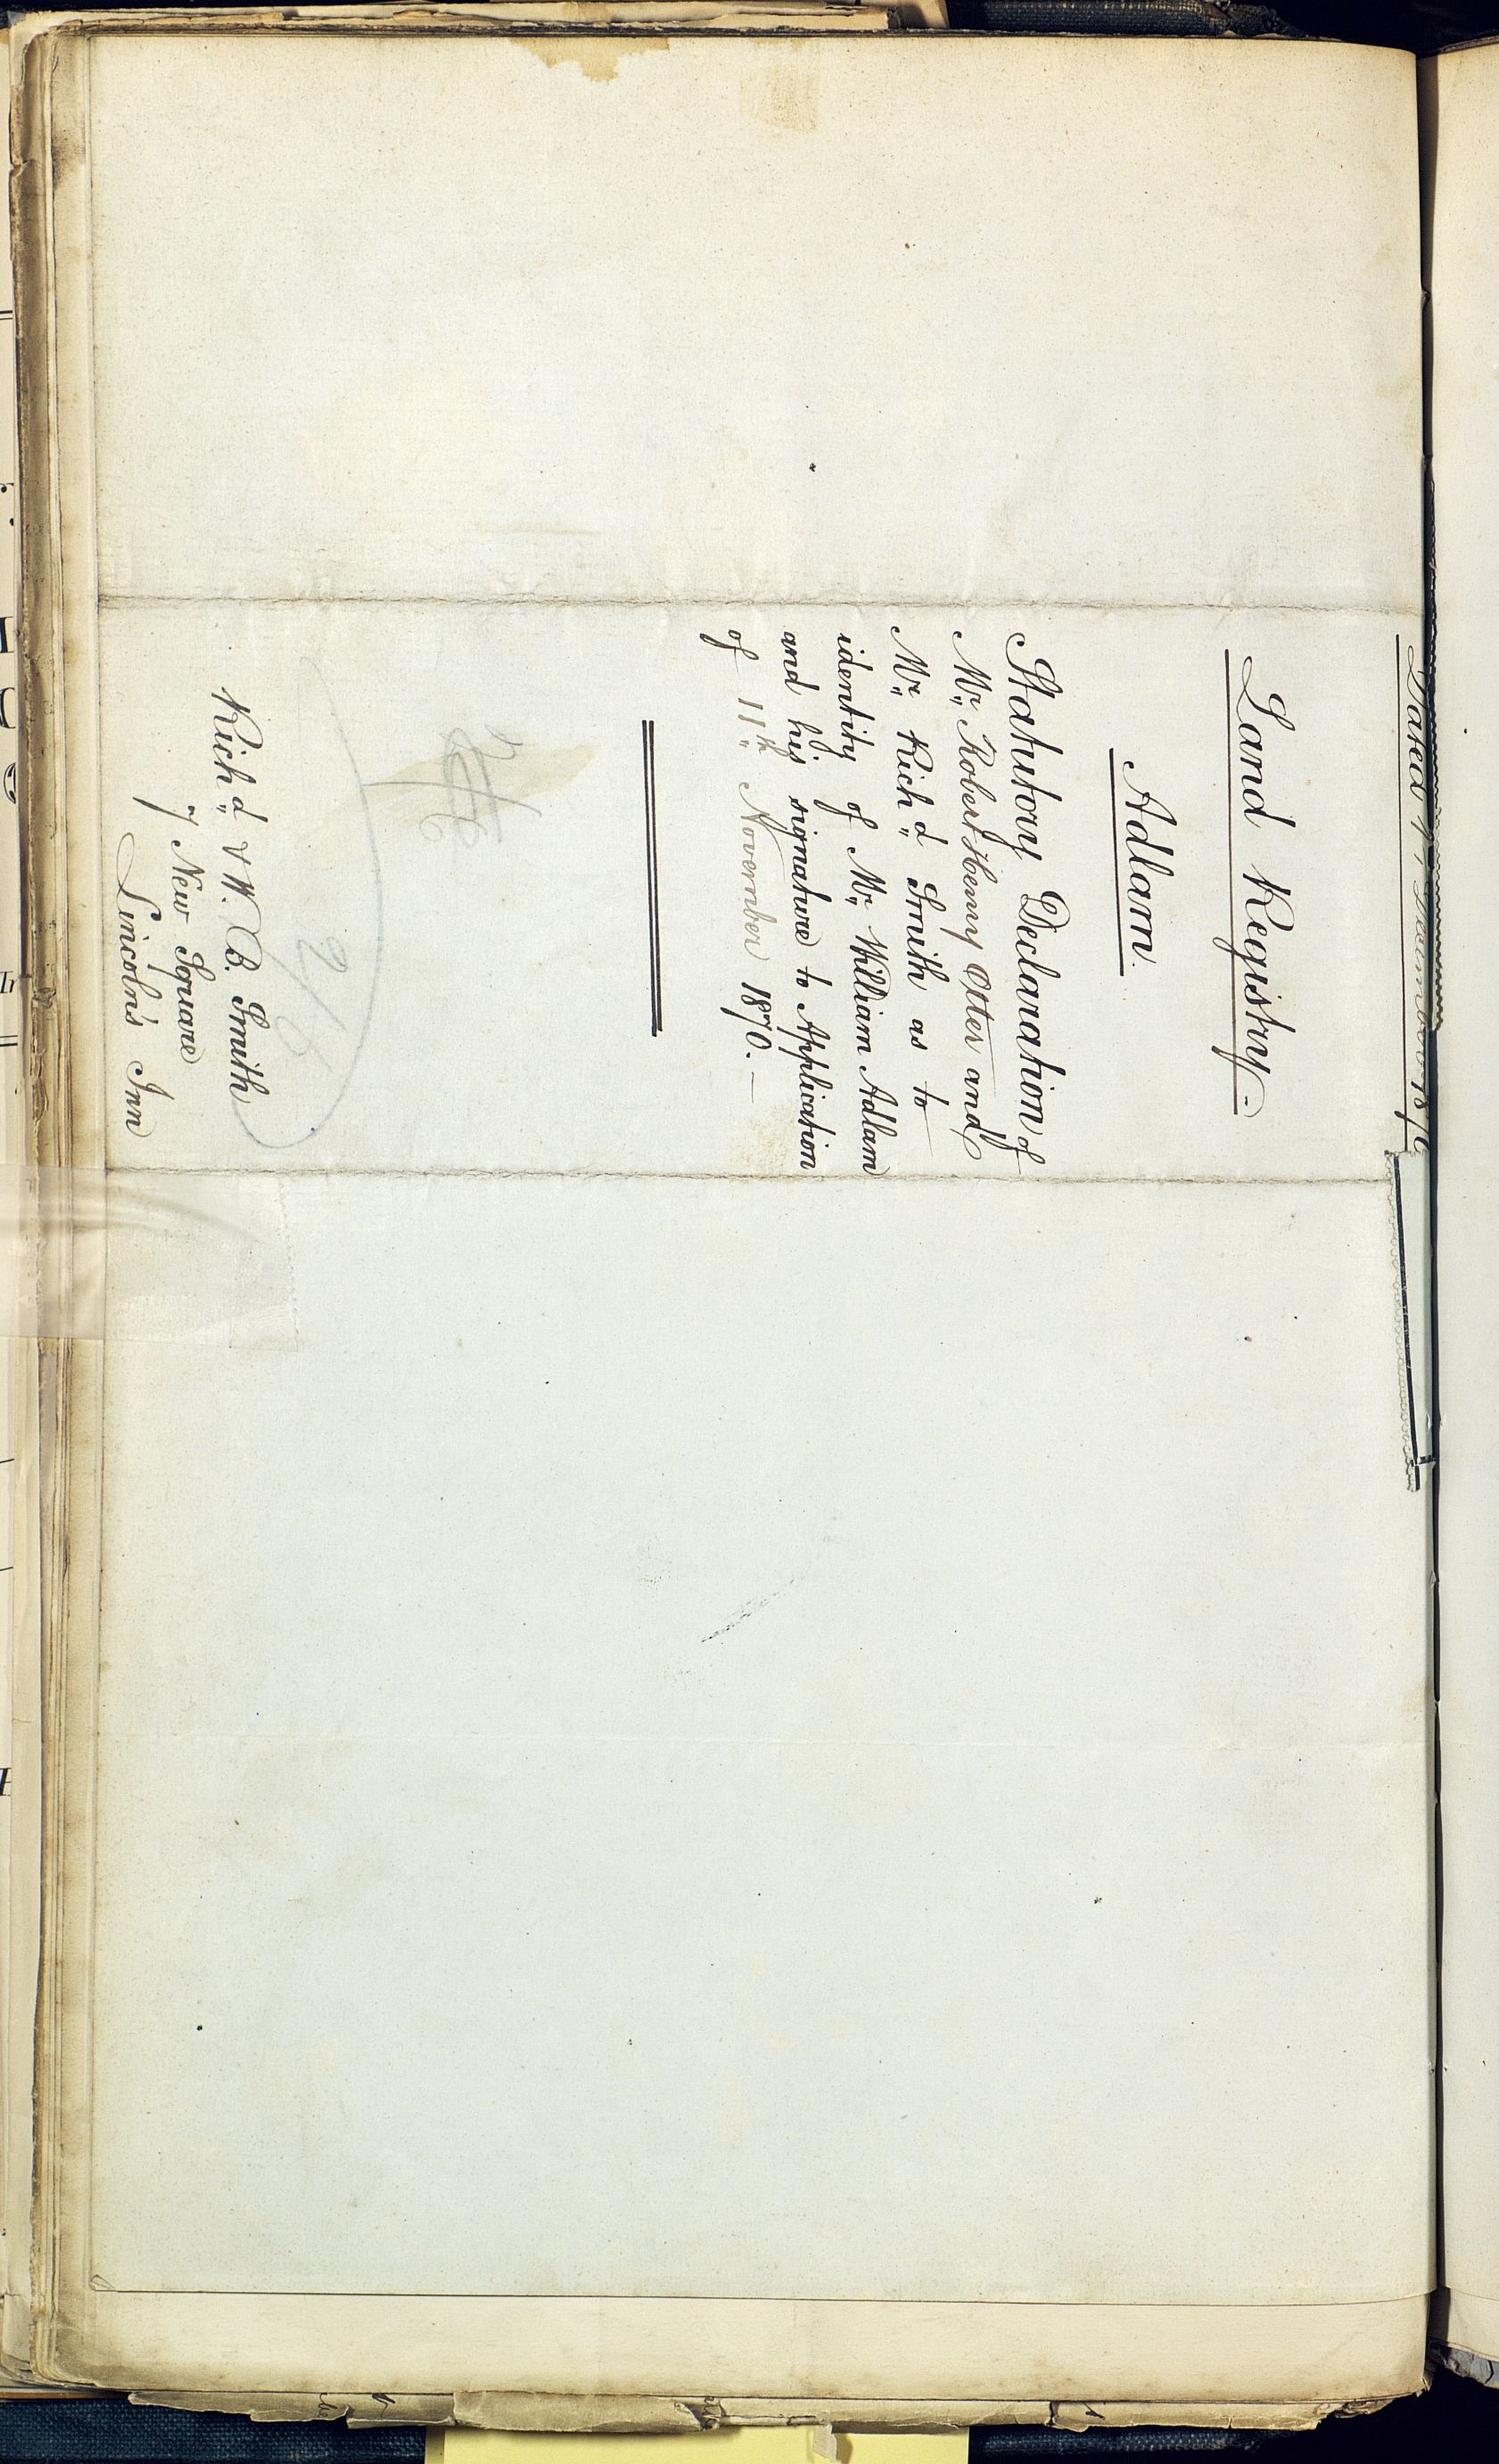 Dated December 1870
Land Registry -
Adlam.
Statutory Declaration of
Mr. Robert Henry Otter and
Mr. Richd. Smith as to
identity of Mr. William Adlam
and his signature to Application
of 11th. November 1870. —
Richd. & W. B. Smith
7 New Square
Lincoln's Inn